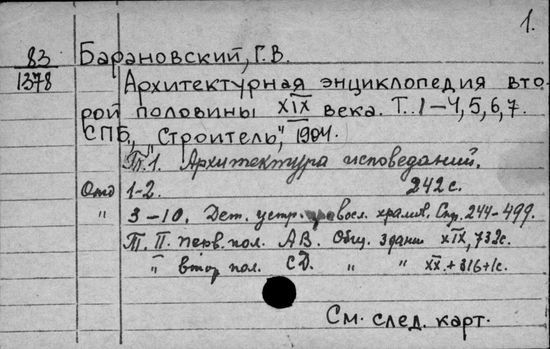 1.
83
1378
Барановский, Г. В.
Архитектурная энциклопедия вто-
рой половины XIX века. Т. 1-4, 5, 6, 7.
СПБ, "Строитель", 1904.
Т. 1. Архитектура исповеданий.
Отд 1-2. 242 с.
" 3-10. Дет. устр. восл. храмов. Стр. 244-499.
Т. II. перв. пол. АВ. Общ. здания XIX, 732 с.
" втор пол. СД. " " XX + 316 + 1 с.
См. след. карт.